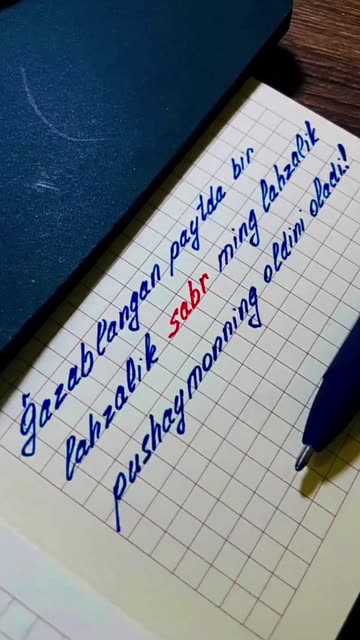 Ğazablangan paytda bir
lahzalik sabr ming lahzalik
pushaymonning oldini oladi!